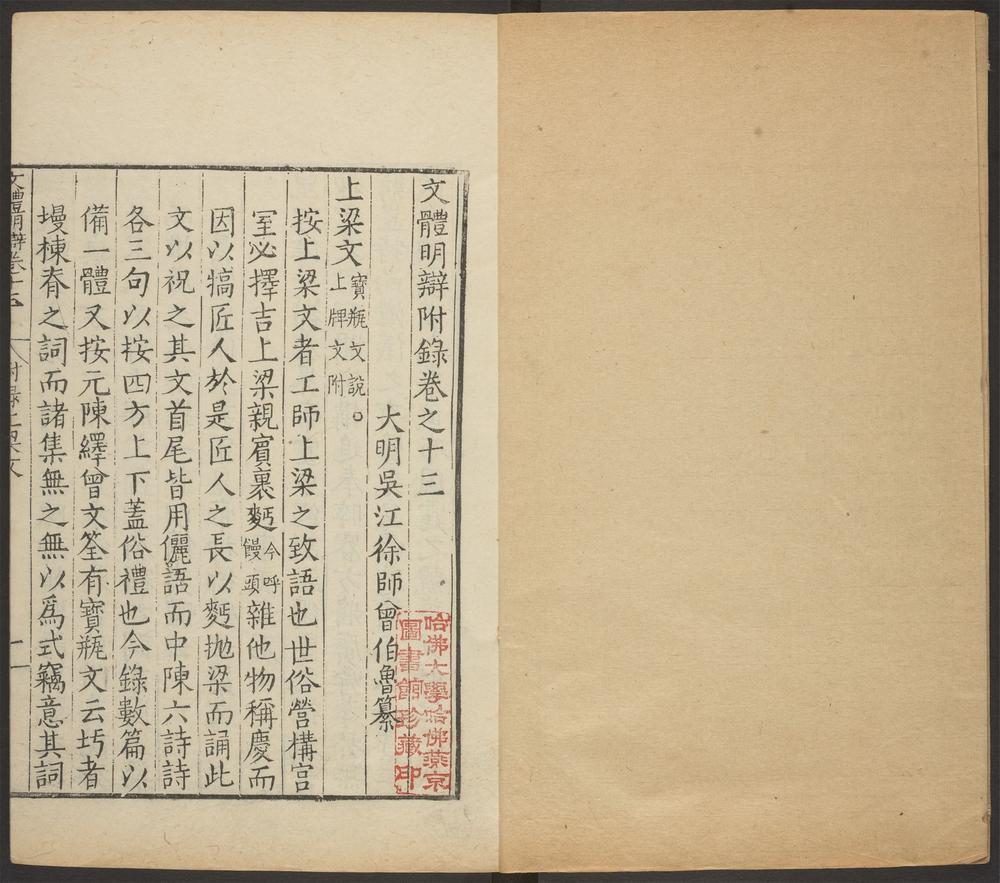 文體明辯附錄卷之十三
大明吳江徐師曾伯魯纂
上梁文寶瓶文說上牌文附。
按上梁文者工師上梁之致語也世俗營構宮
室必擇吉上梁親賓裹麪今呼饅頭雜他物稱慶而
因以犒匠人於是匠人之長以麪拋梁而誦此
文以祝之其文首尾皆用儷語而中陳六詩詩
各三句以按四方上下蓋俗禮也今錄數篇以
備一體又按元陳繹曾文筌有寶瓶文云圬者
墁棟脊之詞而諸集無之無以爲式竊意其詞
文體明辯卷十三 附錄上梁文 一
哈佛大學哈佛燕京
圖書館珍藏印